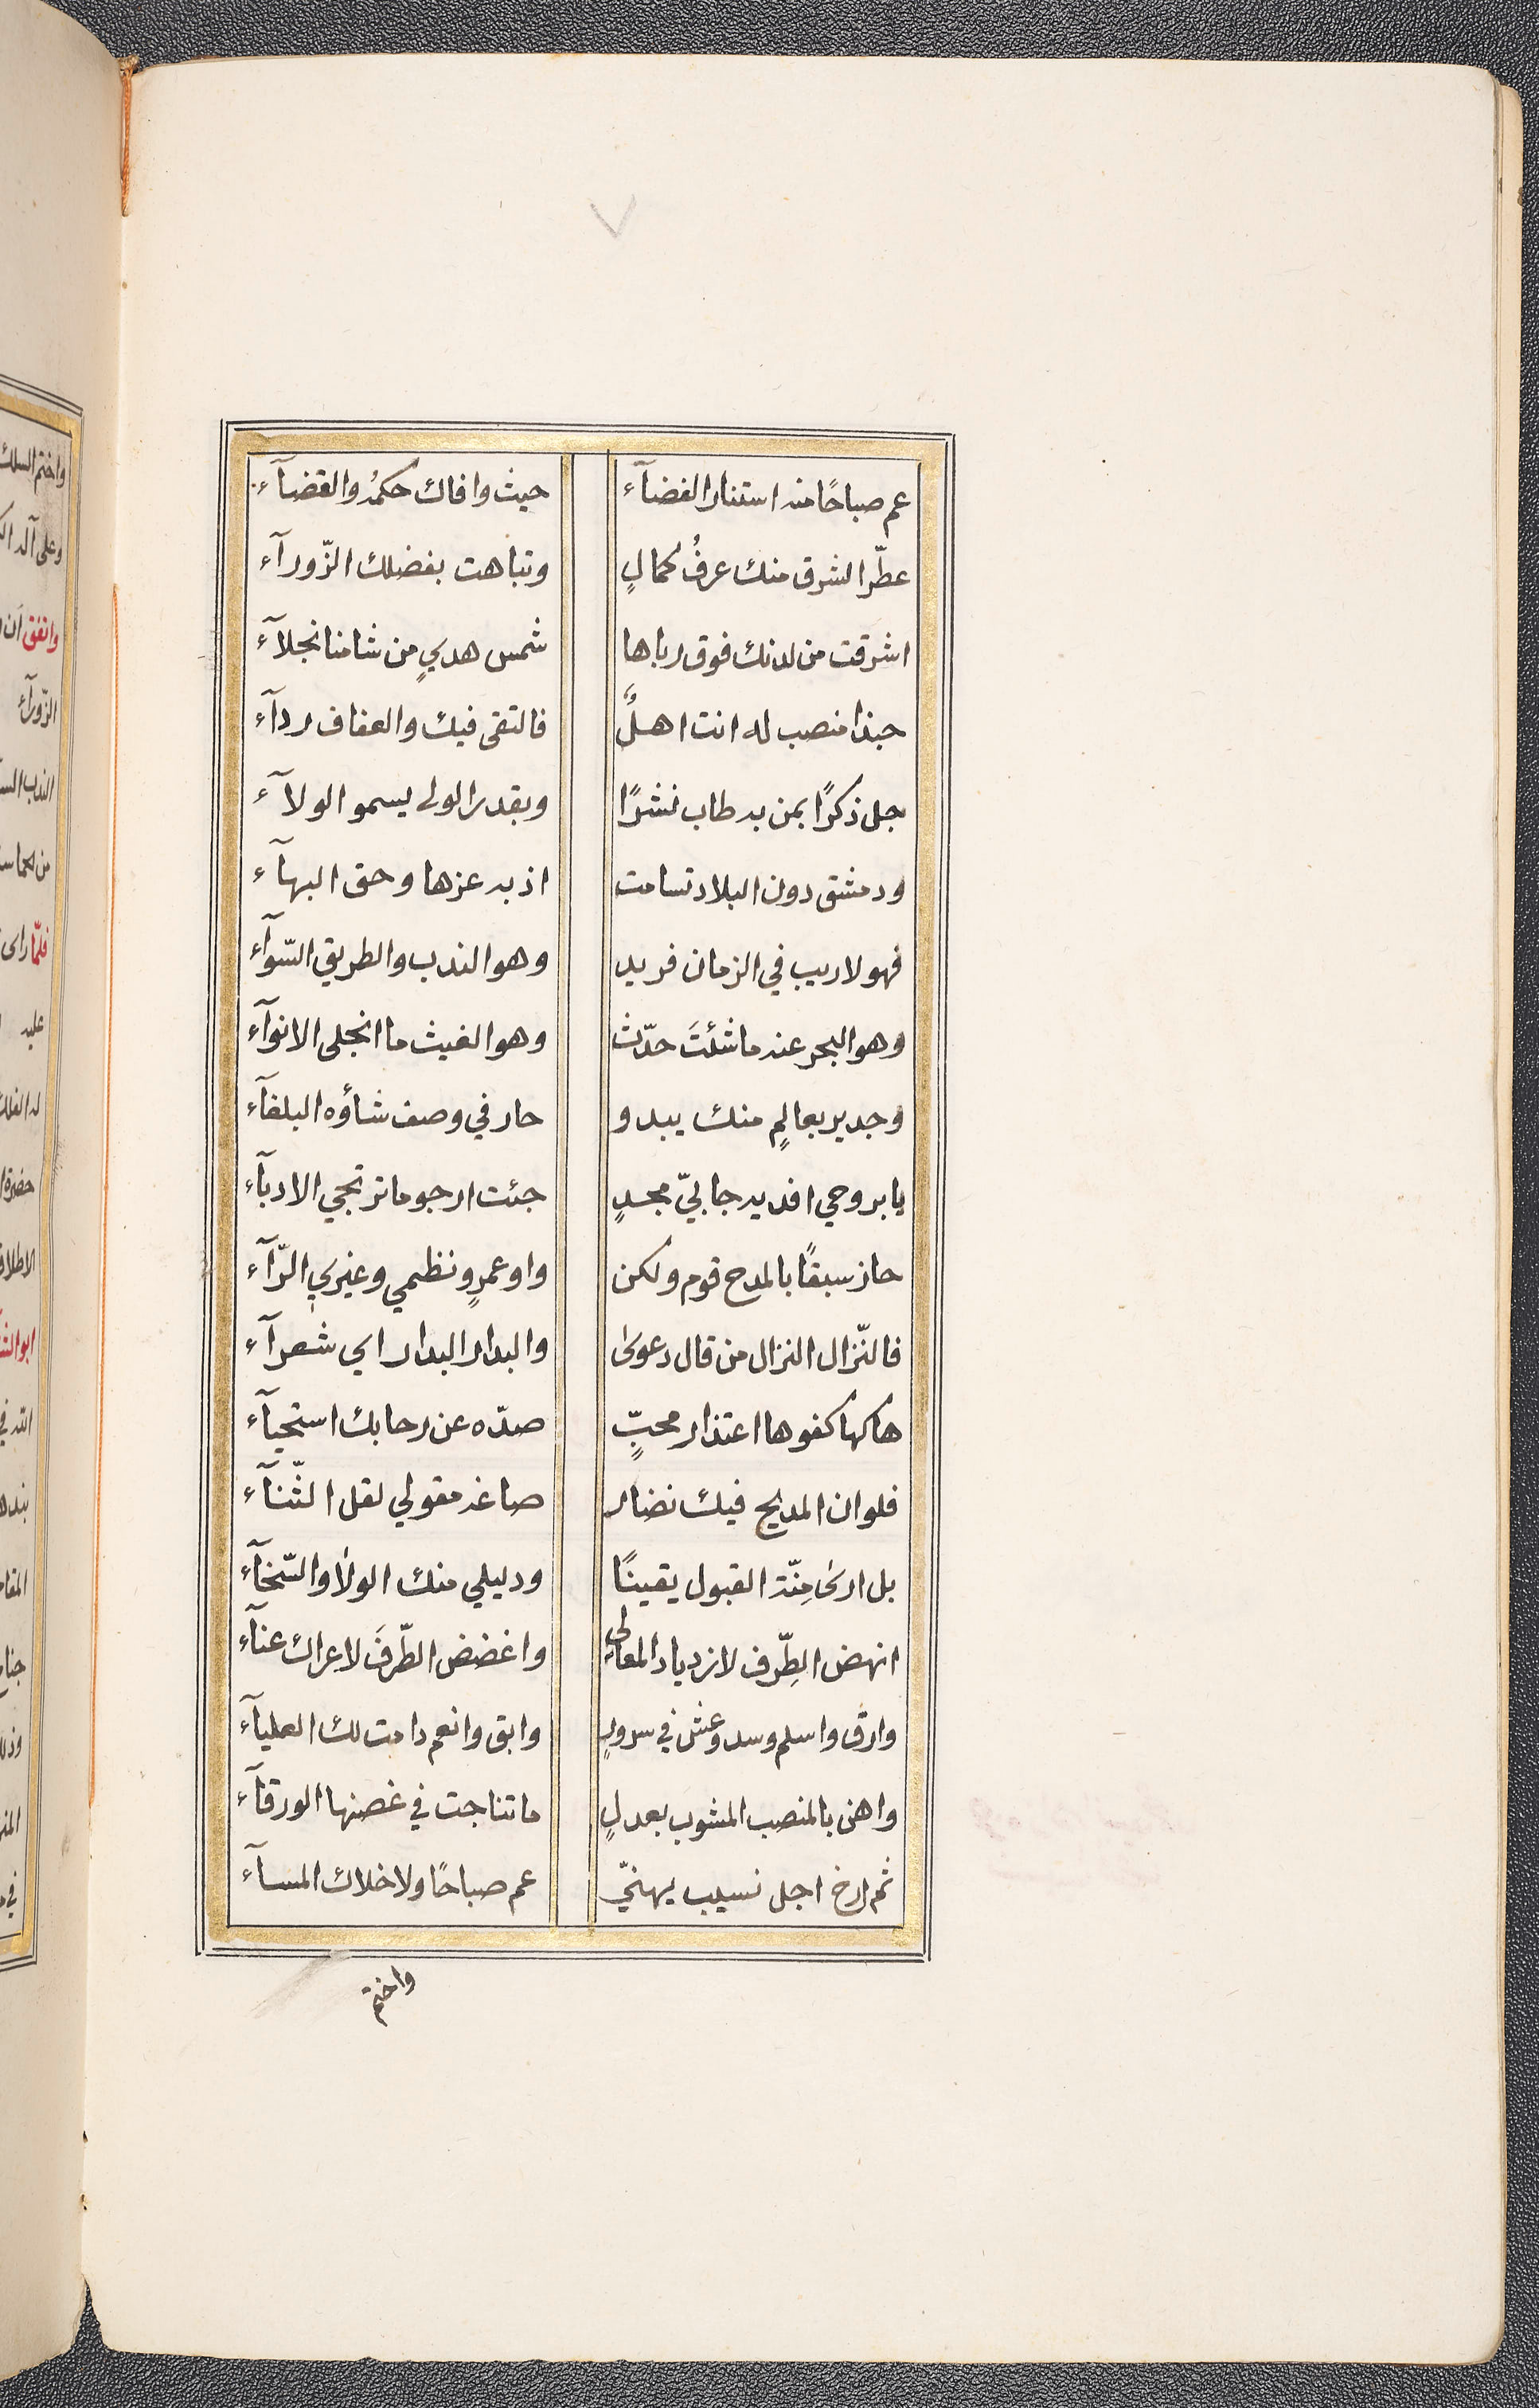 ٧
عم صباحًا منه استنار الفضآء حيث وافاك حكمُه والقضآء
عطّر الشرق منك عرفُ كمالٍ وتباهت بفضلك الزّورآء
اشرقت من لدنك فوق رباها شمس هديٍ من شامنا نجلآء
حبذا منصب له انت اهلٌ فالتقى فيك والعفاف ردآء
جل ذكرًا بمن به طاب نشرًا وبقدر الولى يسمو الولآء
ودمشق دون البلاد تسامت اذ به عزها وحق البهآء
فهو لا ريب في الزمان فريد وهو الندب والطريق السّوآء
وهو البحر عنه ما شئتَ حدّث وهو الغيث ما انجلى الانوآء
وجدير بعالمٍ منك يبدو حار في وصف شأوه البلغآء
يا بروحي افديه جا بيّ مجدٍ جئت ارجو ما ترتجي الادبآء
حاز سبقًا بالمدح قوم ولكن واو عمرٍو نظمي وغيري الرّآء
فالنّزال النزال من قال دعوى والبدار البدار اي شعرآء
هاكها كفوها اعتذار محبٍّ صدّه عن رحابك استحيآء
فلو ان المديح فيك نضار صاغه مقولي لقل الثّنآء
بل ارى مِنّة القبول يقينًا ودليلي منك الولا والسّخآء
انهض الطِّرف لازدياد المعالي واغضض الطّرفَ لا عراك عنآء
وارق واسلم وسد وعش في سرورٍ وابق وانعم دامت لك العليآء
واهن بالمنصب المشوب بعدلٍ ما تناجت في غصنها الورقآء
ثم ارخ اجل نسيب يهنيّ عم صباحًا ولا خلاك المسآء
واختم
واختم السلك
وعلى آله
واتفق ان
الزّورآء
الندب
فلمّا راى
عليه